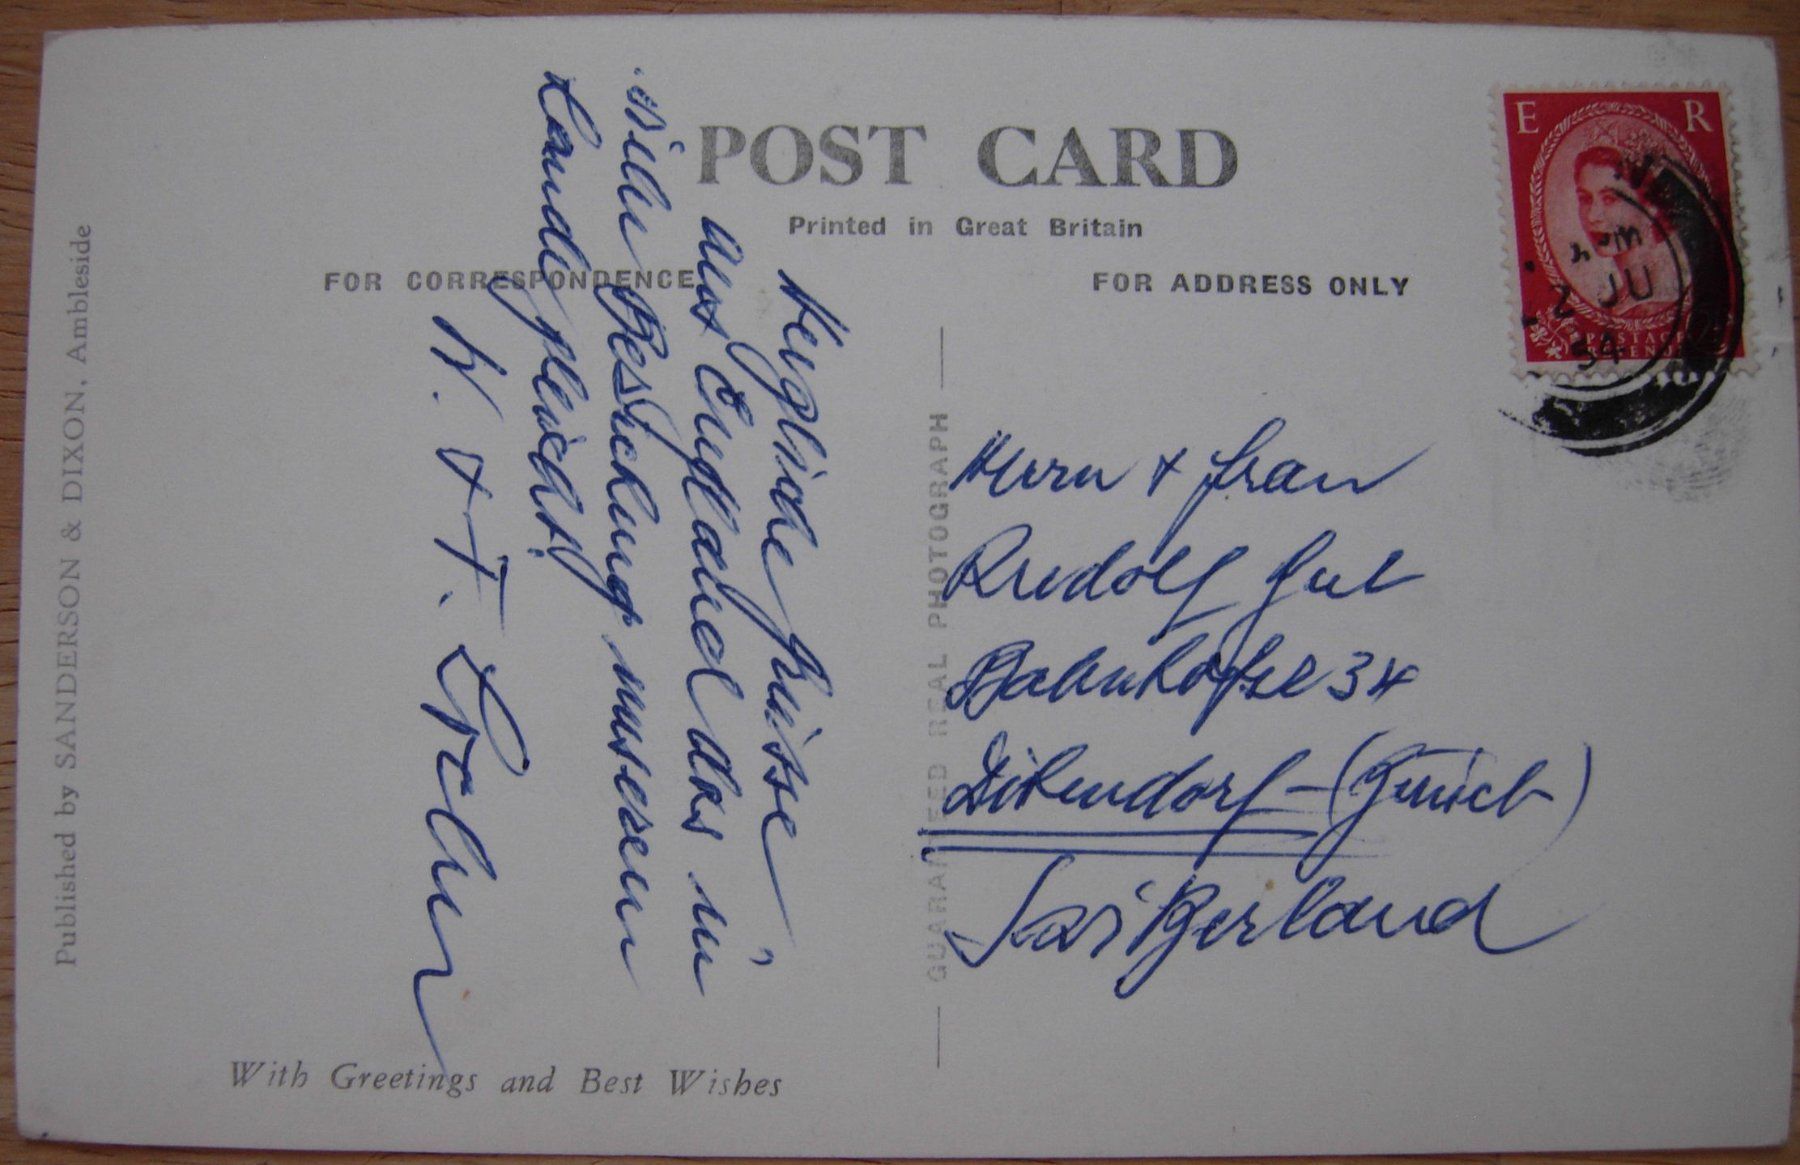 POST CARD
Printed in Great Britain
FOR CORRESPONDENCE
FOR ADDRESS ONLY
Herzliche Grüsse
aus England das in
vieler Beziehung unserem
Lande gleicht!
W. + F. Locher
Herrn + Frau
Rudolf Gut
Bahnhofstr 34
Dübendorf - (Zürich)
Switzerland
E R
2 JU
54
POSTAGE
GUARANTEED REAL PHOTOGRAPH
Published by SANDERSON & DIXON, Ambleside
With Greetings and Best Wishes